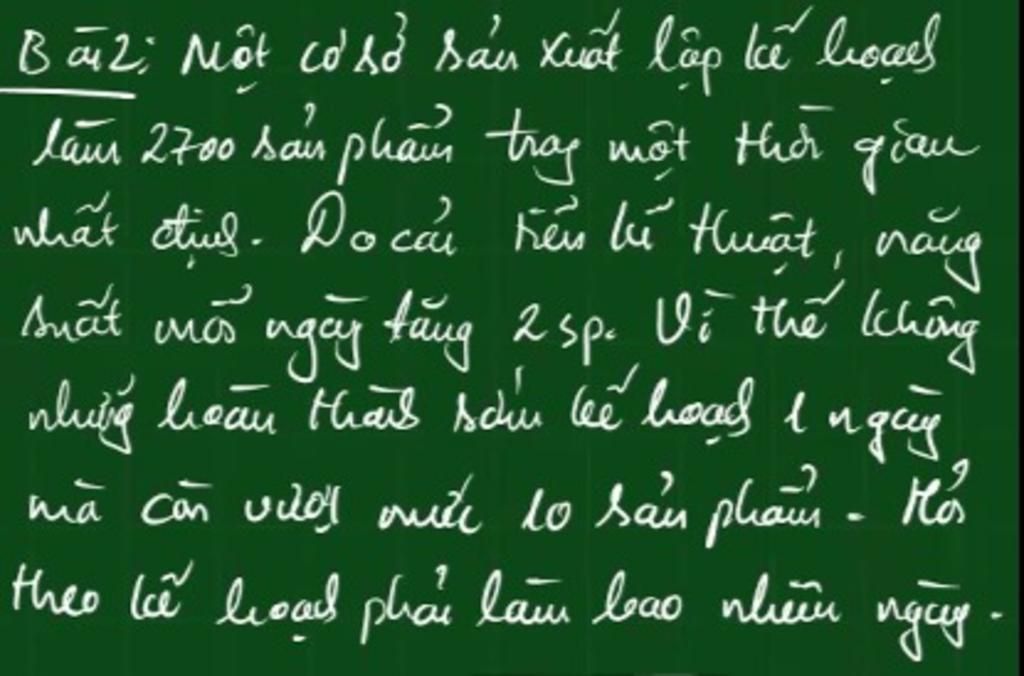 Bài 2: Một cơ sở sản xuất lập kế hoạch
làm 2700 sản phẩm trong một thời gian
nhất định. Do cải tiến kĩ thuật, năng
suất mỗi ngày tăng 2 sp. Vì thế không
những hoàn thành sớm kế hoạch 1 ngày
mà còn vượt mức 10 sản phẩm. Hỏi
theo kế hoạch phải làm bao nhiêu ngày.